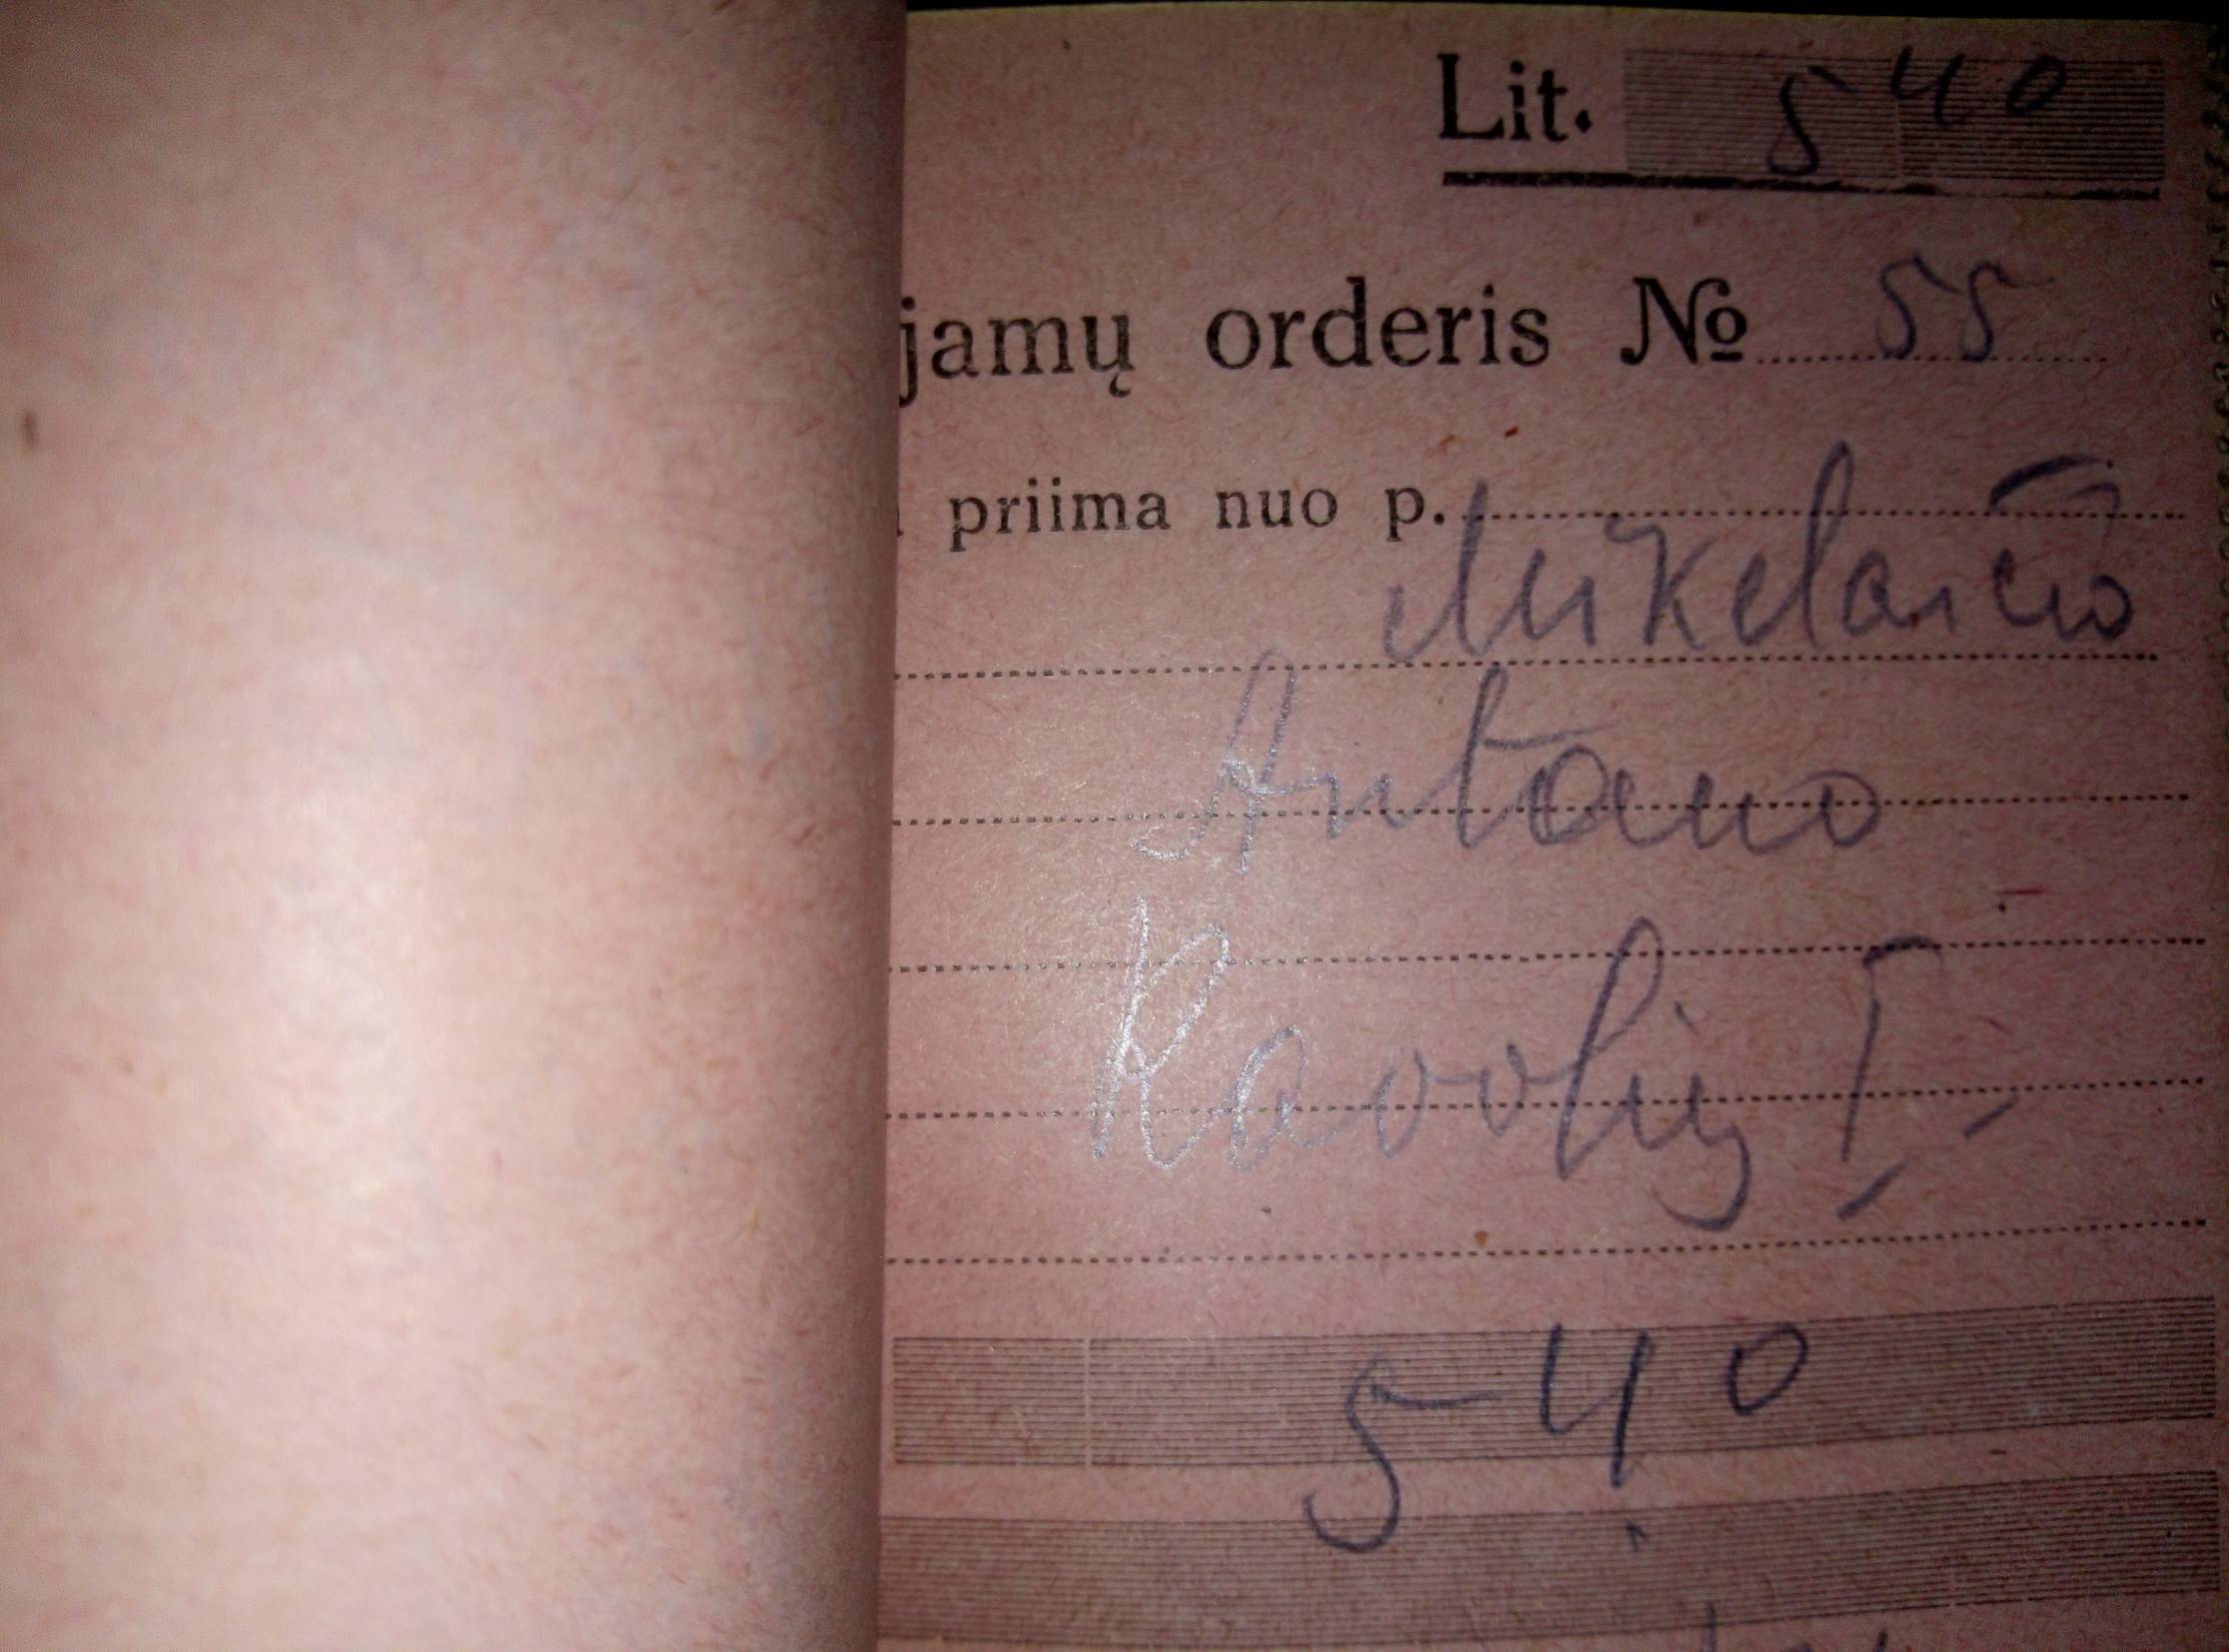 Lit. 5 40
jamų orderis № 55
priima nuo p.
Mikelaičio
Antano
5 40